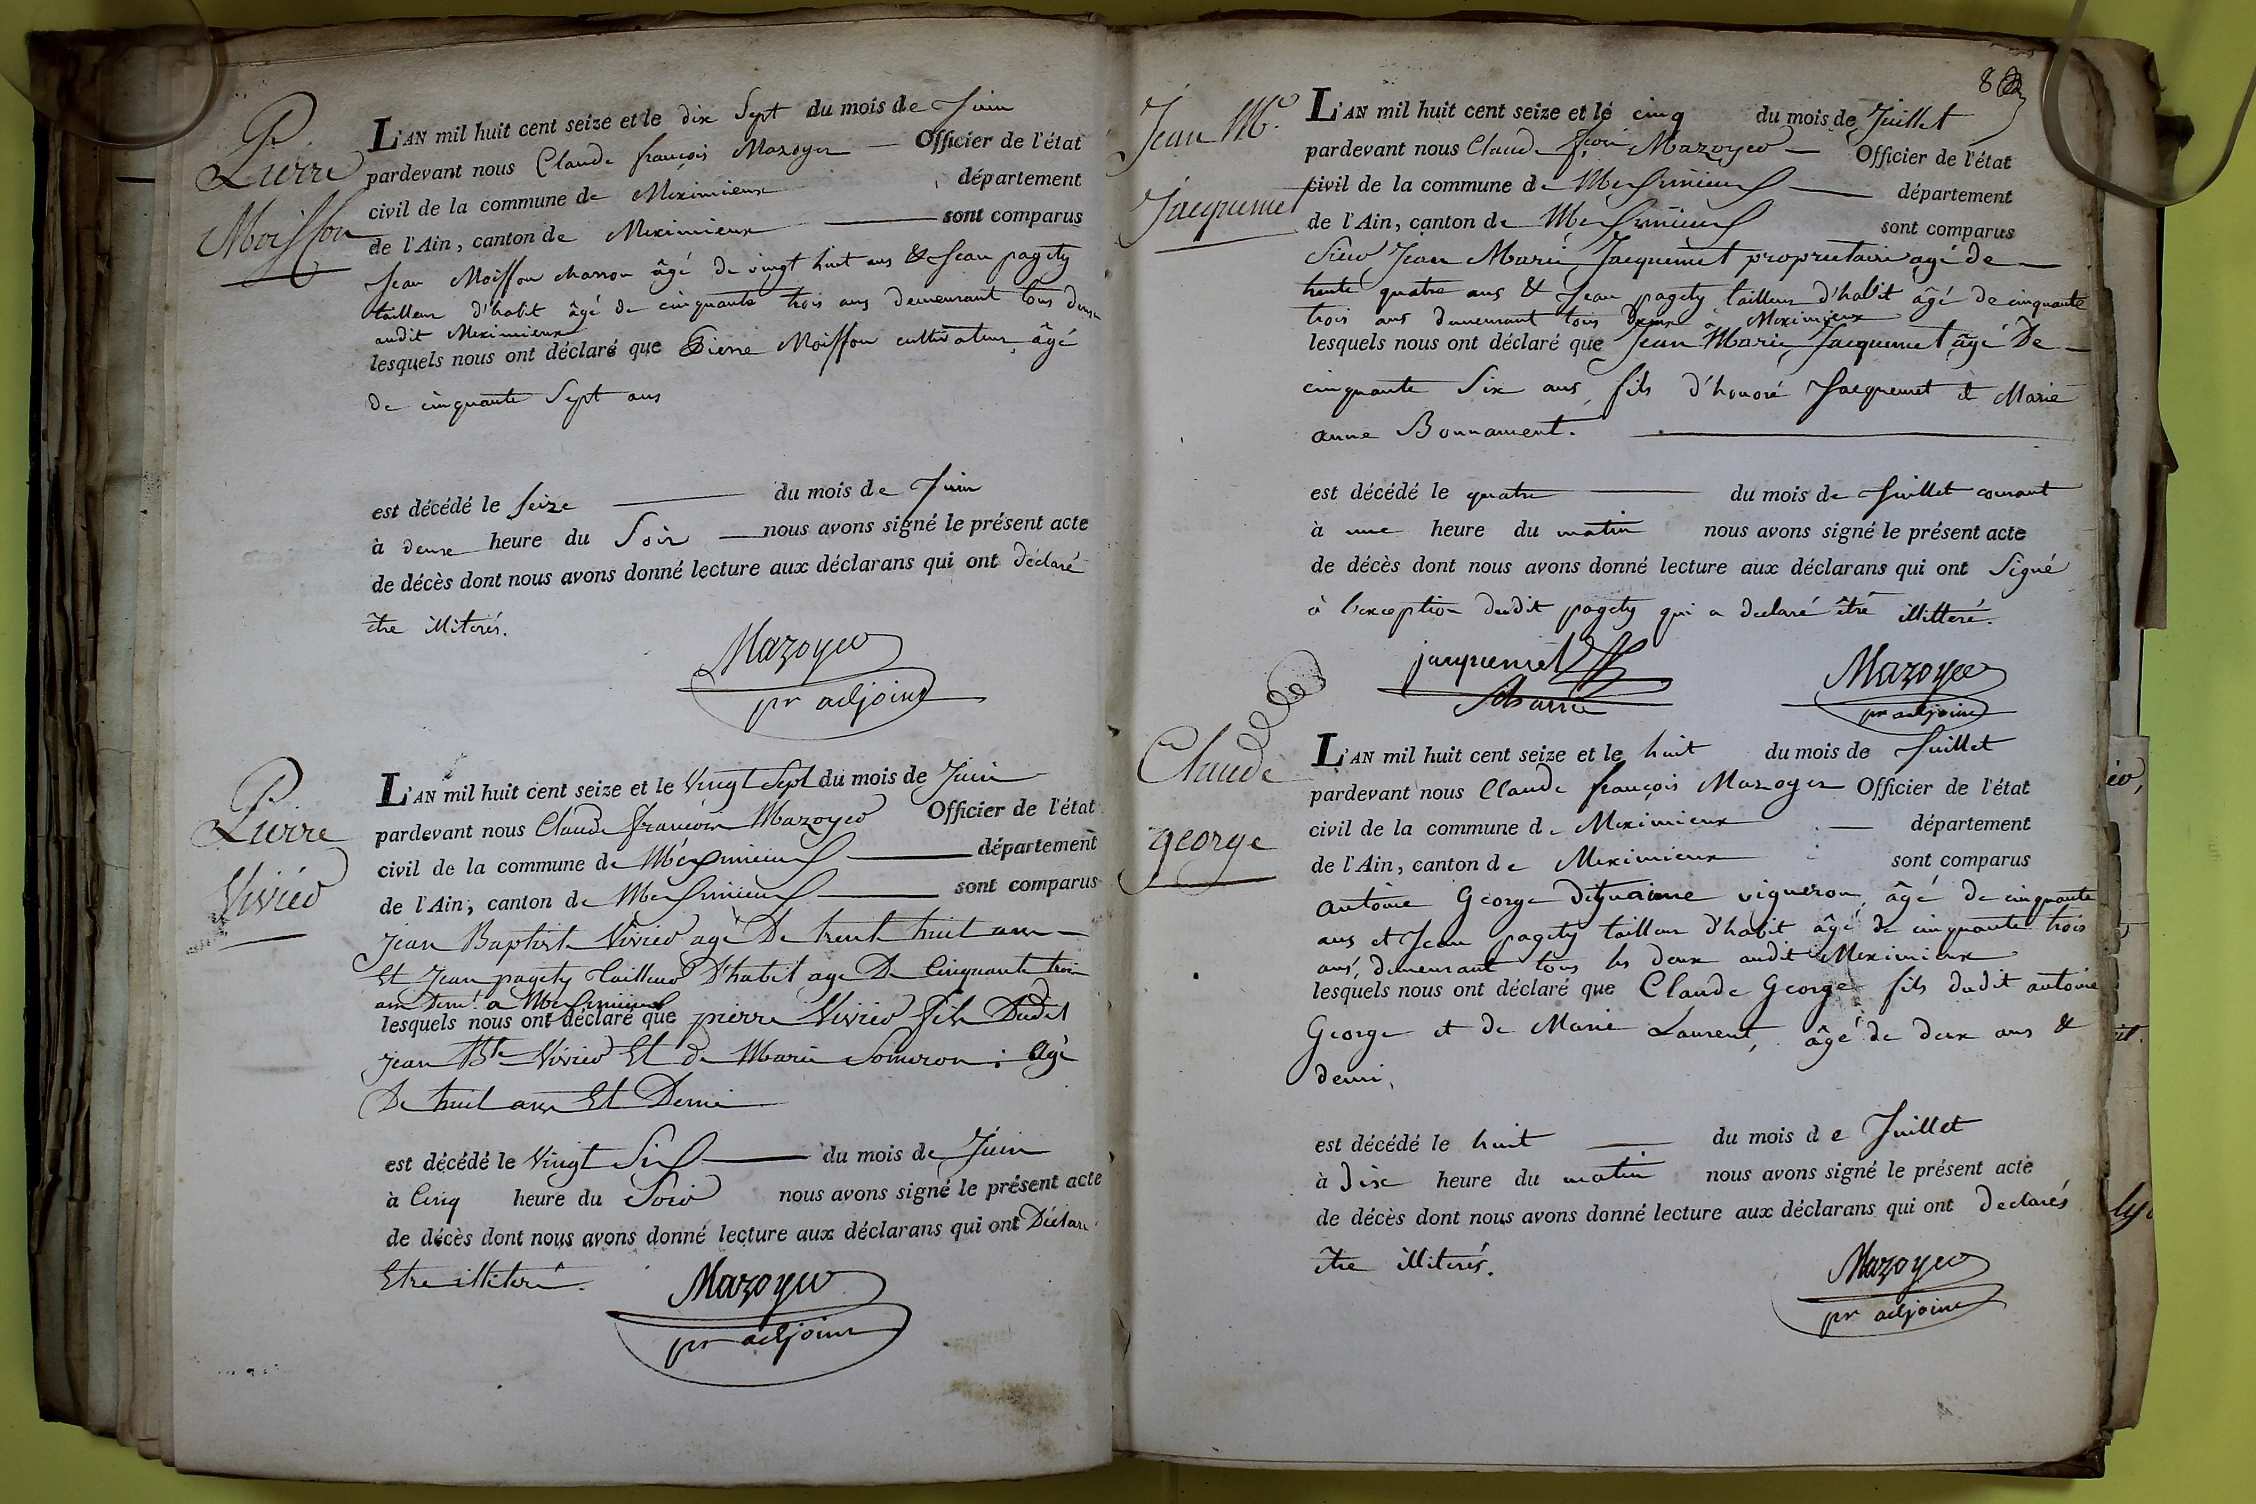 Pierre
Moisson
L'AN mil huit cent seize et le dix Sept du mois de Juin
pardevant nous Claude françois Mazoyer — Officier de l'état
civil de la commune de Meximieux département
de l'Ain, canton de Meximieux — sont comparus
Jean Moisson charron âgé de vingt huit ans & Jean pagety
tailleur d'habit âgé de cinquante trois ans demeurant tous deux
audit Meximieux
lesquels nous ont déclaré que Pierre Moisson cultivateur âgé
de cinquante Sept ans
est décédé le seize — du mois de Juin
à deux heure du Soir — nous avons signé le présent acte
de décès dont nous avons donné lecture aux déclarans qui ont déclaré
être illiterés.
Mazoyer
pr adjoint
Pierre
Vivier
L'AN mil huit cent seize et le Vingt Sept du mois de Juin
pardevant nous Claude françois Mazoyer Officier de l'état
civil de la commune de Meximieux — département
de l'Ain, canton de Meximieux — sont comparus
Jean Baptiste Vivier agé De trente huit ans —
Et Jean pagety Tailleur D'habit age De Cinquante trois
ans Demt. a Meximieux
lesquels nous ont déclaré que pierre Vivier fils Dudit
Jean Bte Vivier Et de Marie : Agé
De huit ans Et Demie
est décédé le Vingt Six — du mois de Juin
à Cinq heure du Soir nous avons signé le présent acte
de décès dont nous avons donné lecture aux déclarans qui ont Déclaré
Etre illiteré.
Mazoyer
pr adjoint
8
Jean Me.
Jacquemet
L'AN mil huit cent seize et le cinq du mois de Juillet
pardevant nous Claude fçois Mazoyer — Officier de l'état
civil de la commune de Meximieux — département
de l'Ain, canton de Meximieux sont comparus
Sieur Jean Marie Jacquemet proprietaire agé de —
trente quatre ans & Jean pagety tailleur d'habit âgé de cinquante
trois ans demeurant tous deux à Meximieux
lesquels nous ont déclaré que Jean Marie Jacquemet âgé De —
cinquante Six ans, fils d'honoré Jacquemet & Marie
anne Bonnament.
est décédé le quatre — du mois de Juillet courant
à une heure du matin nous avons signé le présent acte
de décès dont nous avons donné lecture aux déclarans qui ont Signé
à l'exception dudit pagety qui a declaré être illitteré.
jacquemet
Mazoyer
pr adjoint
Claude
george
L'AN mil huit cent seize et le huit du mois de Juillet
pardevant nous Claude françois Mazoyer Officier de l'état
civil de la commune de Meximieux — département
de l'Ain, canton de Meximieux sont comparus
antoine George vigneron, âgé de cinquante
ans et Jean pagety tailleur d'habit âgé de cinquante trois
ans, demeurant tous les deux audit Meximieux
lesquels nous ont déclaré que Claude George fils dudit antoine
George et de Marie Laurent, âgé de deux ans &
demi,
est décédé le huit — du mois de Juillet
à dix heure du matin nous avons signé le présent acte
de décès dont nous avons donné lecture aux déclarans qui ont declarés
être illiterés.
Mazoyer
pr adjoint